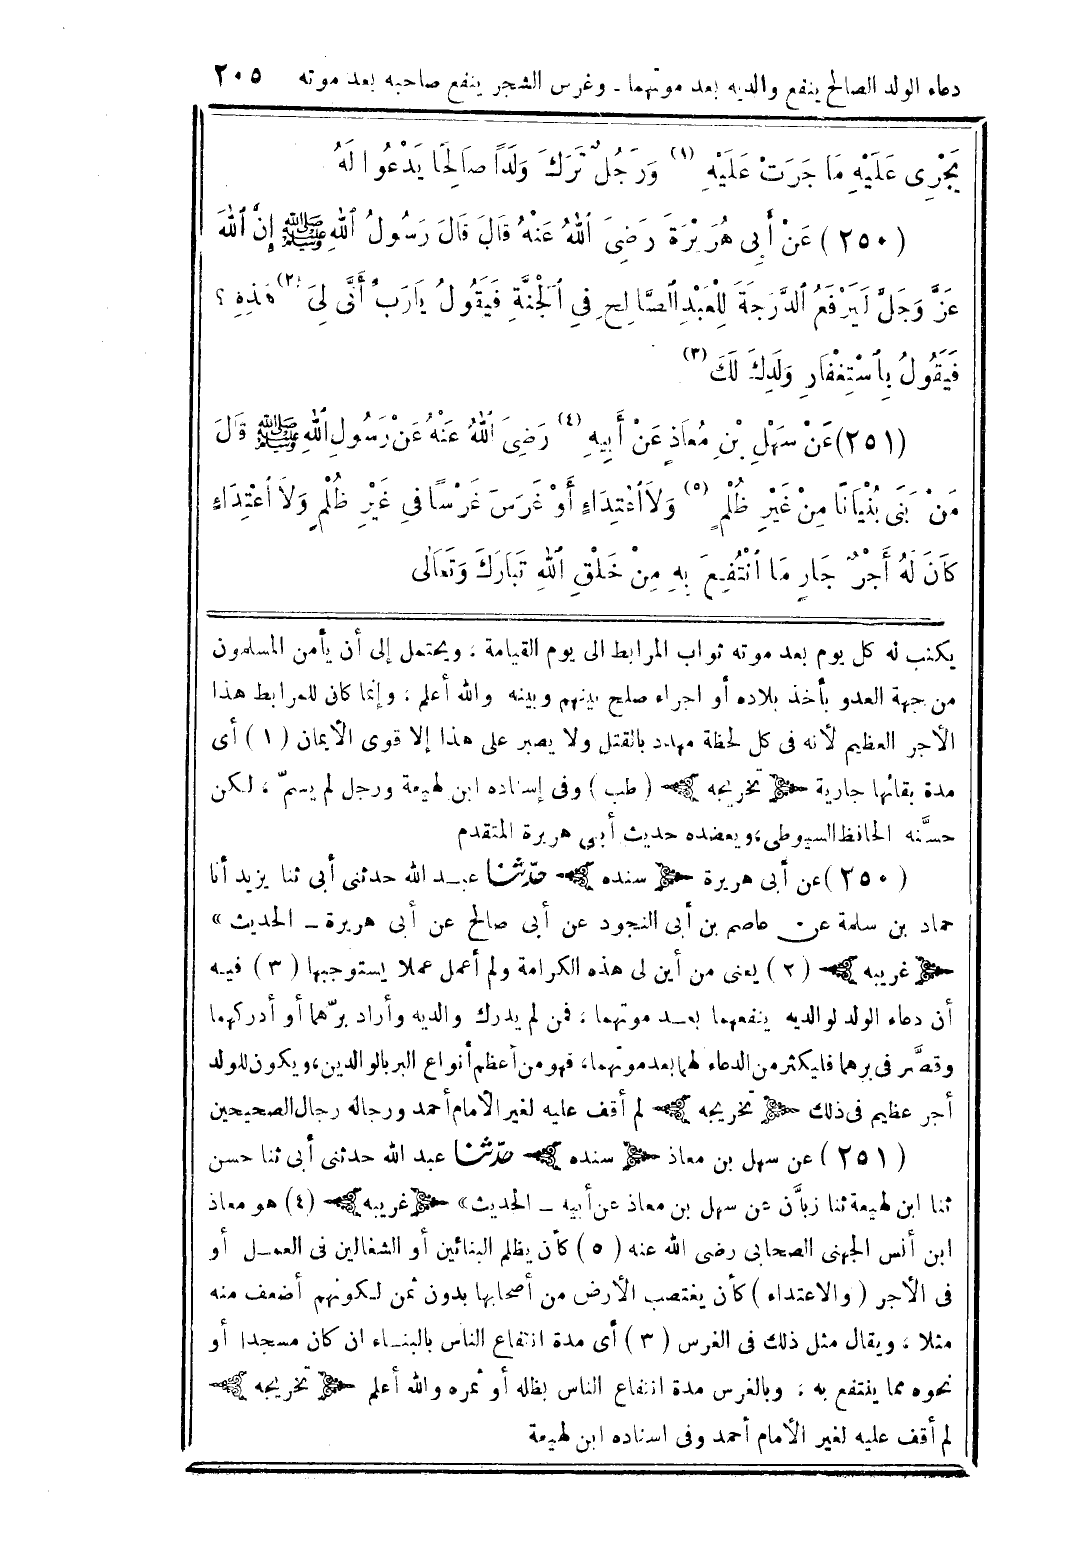 دعاء الولد الصالح ينفع والديه بعد موتهما ـ وغرس الشجر ينفع صاحبه بعد موته ٢٠٥
يَجْرِى عَلَيْهِ مَا جَرَتْ عَلَيْهِ (١) وَرَجُلٌ تَرَكَ وَلَدًا صَالِحًا يَدْعُوا لَهُ
(٢٥٠) عَنْ أَبِى هُرَيْرَةَ رَضِىَ اللهُ عَنْهُ قَالَ قَالَ رَسُولُ اللهِ ﷺ إِنَّ اللهَ
عَزَّ وَجَلَّ لَيَرْفَعُ الدَّرَجَةَ لِلْعَبْدِ الصَّالِحِ فِي الْجَنَّةِ فَيَقُولُ يَارَبِّ أَنَّى لِىَ (٢) هَذِهِ ؟
فَيَقُولُ بِاسْتِغْفَارِ وَلَدِكَ لَكَ (٣)
(٢٥١) عَنْ سَهْلِ بْنِ مُعَاذٍ عَنْ أَبِيهِ (٤) رَضِىَ اللهُ عَنْهُ عَنْ رَسُولِ اللهِ ﷺ قَالَ
مَنْ بَنَى بُنْيَانًا مِنْ غَيْرِ ظُلْمٍ (٥) وَلَا اعْتِدَاءٍ أَوْ غَرَسَ غَرْسًا فِي غَيْرِ ظُلْمٍ وَلَا اعْتِدَاءٍ
كَانَ لَهُ أَجْرٌ جَارٍ مَا انْتُفِعَ بِهِ مِنْ خَلْقِ اللهِ تَبَارَكَ وَتَعَالَى
يكتب له كل يوم بعد موته ثواب المرابط الى يوم القيامة ، ويحتمل إلى أن يأمن المسلمون
من جهة العدو بأخذ بلاده أو اجراء صلح بينهم وبينه والله أعلم ، وإنما كان للمرابط هذا
الأجر العظيم لأنه فى كل لحظة مهدد بالقتل ولا يصبر على هذا إلا قوى الأيمان (١) أى
مدة بقائها جارية ﴿ تخريجه ﴾ (طب) وفى إسناده ابن لهيعة ورجل لم يسمّ ، لكن
حسَّنه الحافظ السيوطى، ويعضده حديث أبي هريرة المتقدم
(٢٥٠) عن أبى هريرة ﴿ سنده ﴾ حدّثنا عبد الله حدثنى أبى ثنا يزيد أنا
حماد بن سلمة عن عاصم بن أبى النجود عن أبى صالح عن أبى هريرة ـ الحديث »
﴿ غريبه ﴾ (٢) يعنى من أين لى هذه الكرامة ولم أعمل عملا يستوجبها (٣) فيه
أن دعاء الولد لوالديه ينفعهما بعد موتهما ، فمن لم يدرك والديه وأراد برّهما أو أدركهما
وقصَّر فى برهما فليكثر من الدعاء لهما بعد موتهما، فهو من أعظم أنواع البر بالوالدين، ويكون للولد
أجر عظيم فى ذلك ﴿ تخريجه ﴾ لم أقف عليه لغير الأمام أحمد ورجاله رجال الصحيحين
(٢٥١) عن سهل بن معاذ ﴿ سنده ﴾ حدّثنا عبد الله حدثنى أبى ثنا حسن
ثنا ابن لهيعة ثنا زبَّان عن سهل بن معاذ عن أبيه ـ الحديث» ﴿ غريبه ﴾ (٤) هو معاذ
ابن أنس الجهنى الصحابى رضى الله عنه (٥) كأن يظلم البنائين أو الشغالين فى العمل أو
فى الأجر (والاعتداء) كأن يغتصب الأرض من أصحابها بدون ثمن لكونهم أضعف منه
مثلا ، ويقال مثل ذلك فى الغرس (٣) أى مدة انتفاع الناس بالبناء ان كان مسجدا أو
نحوه مما ينتفع به ، وبالغرس مدة انتفاع الناس بظله أو ثمره والله أعلم ﴿ تخريجه ﴾
لم أقف عليه لغير الأمام أحمد وفى اسناده ابن لهيعة